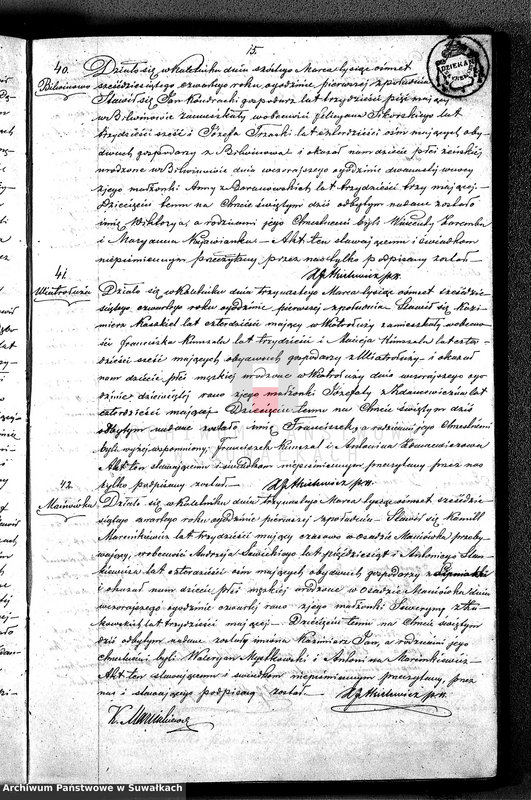 15.
40. Działo się w Kaletniku dnia szóstego Marca tysiąc ośmset
Bilwinowo sześćdziesiątego czwartego roku, o godzinie pierwszej z południa
Stawił się Jan Kondracki gospodarz lat trzydzieści pięć mający
w Bilwinowie zamieszkały w obecności Felicyana Sikorskiego lat
trzydzieści sześć i Józefa lat czterdzieści ośm mających oby-
dwuch gospodarzy z Bilwinowa i okazał nam dziecię płci żeńskiej
urodzone w Bilwinowie dnia wczorajszego o godzinie dwunastej w nocy
z jego małżonki Anny z Baranowskich lat trzydzieści trzy mającej.
Dziecięciu temu na Chrzcie świętym dziś odbytym nadane zostało
imię Wiktorya, a rodzicami jego Chrzestnemi byli Wincenty Zaremba
i Maryanna Kujawianka. Akt ten stawającemu i świadkom
niepiśmiennym przeczytany przez nas tylko podpisany został.
41.
Działo się w Kaletniku dnia trzynastego Marca tysiąc ośmset sześćdzie-
siątego czwartego roku o godzinie pierwszej z południa. Stawił się Kazi-
mierz lat czterdzieści mający w zamieszkały w obecno-
ści Franciszka Kimszala lat trzydzieści i Macieja Kimszala lat czter-
dzieści sześć mających obydwuch gospodarzy z i okazał
nam dziecię płci męzkiej urodzone w dnia wczorajszego o go-
dzinie dziewiątej rano z jego małżonki Józefaty z Zdancewiczów lat
czterdzieści mającej. Dziecięciu temu na Chrzcie świętym dziś
odbytym nadane zostało imię Franciszek, a rodzicami jego Chrzestnemi
byli wyżej wspomniony Franciszek Kimszal i Antonina
Akt ten stawającemu i świadkom niepiśmiennym przeczytany przez nas
tylko podpisany został.
42. Działo się w Kaletniku dnia trzynastego Marca tysiąc ośmset sześćdzie-
Maćkówka siątego czwartego roku o godzinie pierwszej z południa. Stawił się Kamill
Marcinkiewicz lat trzydzieści mający czasowo w osadzie Maćkówka przeby-
wający, w obecności Andrzeja lat pięćdziesiąt i Antoniego Stan-
kiewicza lat czterdzieści ośm mających obydwuch gospodarzy z
i okazał nam dziecię płci męzkiej urodzone w osadzie Maćkówka dnia
wczorajszego o godzinie czwartej rano z jego małżonki Seweryny z
lat trzydzieści mającej. Dziecięciu temu na Chrzcie świętym
dziś odbytym nadane zostały imiona Kazimierz Jan, a rodzicami jego
chrzestnemi byli Waleryan Myszkowski i Antonina Marcinkiewicz.
Akt ten stawającemu i świadkom niepiśmiennym przeczytany, przez
nas i stawającego podpisany został.
K. Marcinkiewicz
Archiwum Państwowe w Suwałkach